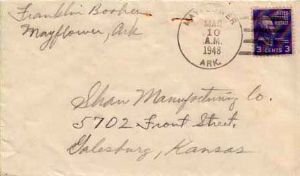 Franklin Booher
Mayflower, Ark
MAYFLOWER
MAR
10
A.M.
1948
ARK.
3 CENTS 3
Shaw Manufacturing Co.
5702 Front Street.
Galesburg, Kansas